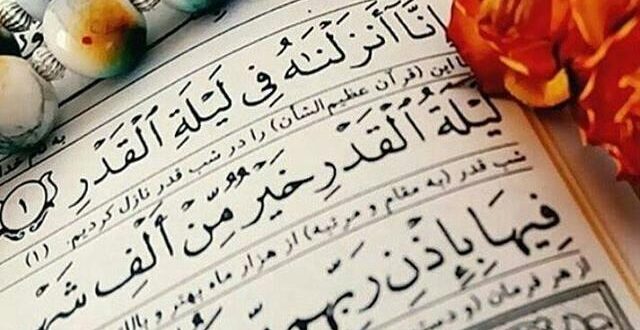 إِنَّا أَنزَلْنَـٰهُ فِي لَيْلَةِ ٱلْقَدْرِ ١
ما این (قرآن عظیم‌الشأن) را در شب قدر نازل کردیم. (۱)
لَيْلَةُ ٱلْقَدْرِ خَيْرٌ مِّنْ أَلْفِ شَهْرٍ
شب قدر (به مقام و مرتبه) از هزار ماه بهتر و بالا
فِيهَا بِإِذْنِ رَبِّهِم
از هر فرمان (و دستور